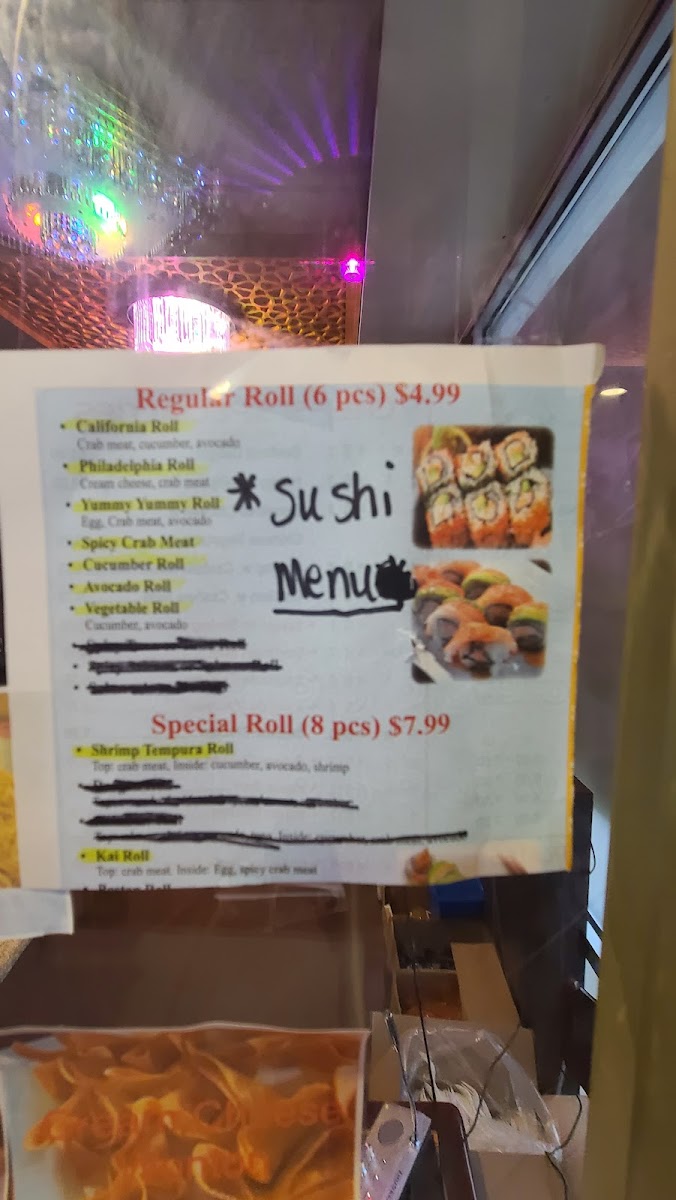 Regular Roll (6 pcs) $4.99
• California Roll
Crab meat, cucumber, avocado
• Philadelphia Roll
Cream cheese, crab meat
• Yummy Yummy Roll
Egg, Crab meat, avocado
• Spicy Crab Meat
• Cucumber Roll
• Avocado Roll
• Vegetable Roll
Cucumber, avocado
* Sushi
Menu
Special Roll (8 pcs) $7.99
• Shrimp Tempura Roll
Top: crab meat, Inside: cucumber, avocado, shrimp
• Kai Roll
Top: crab meat. Inside: Egg, spicy crab meat
• Boston Roll
Cream Cheese